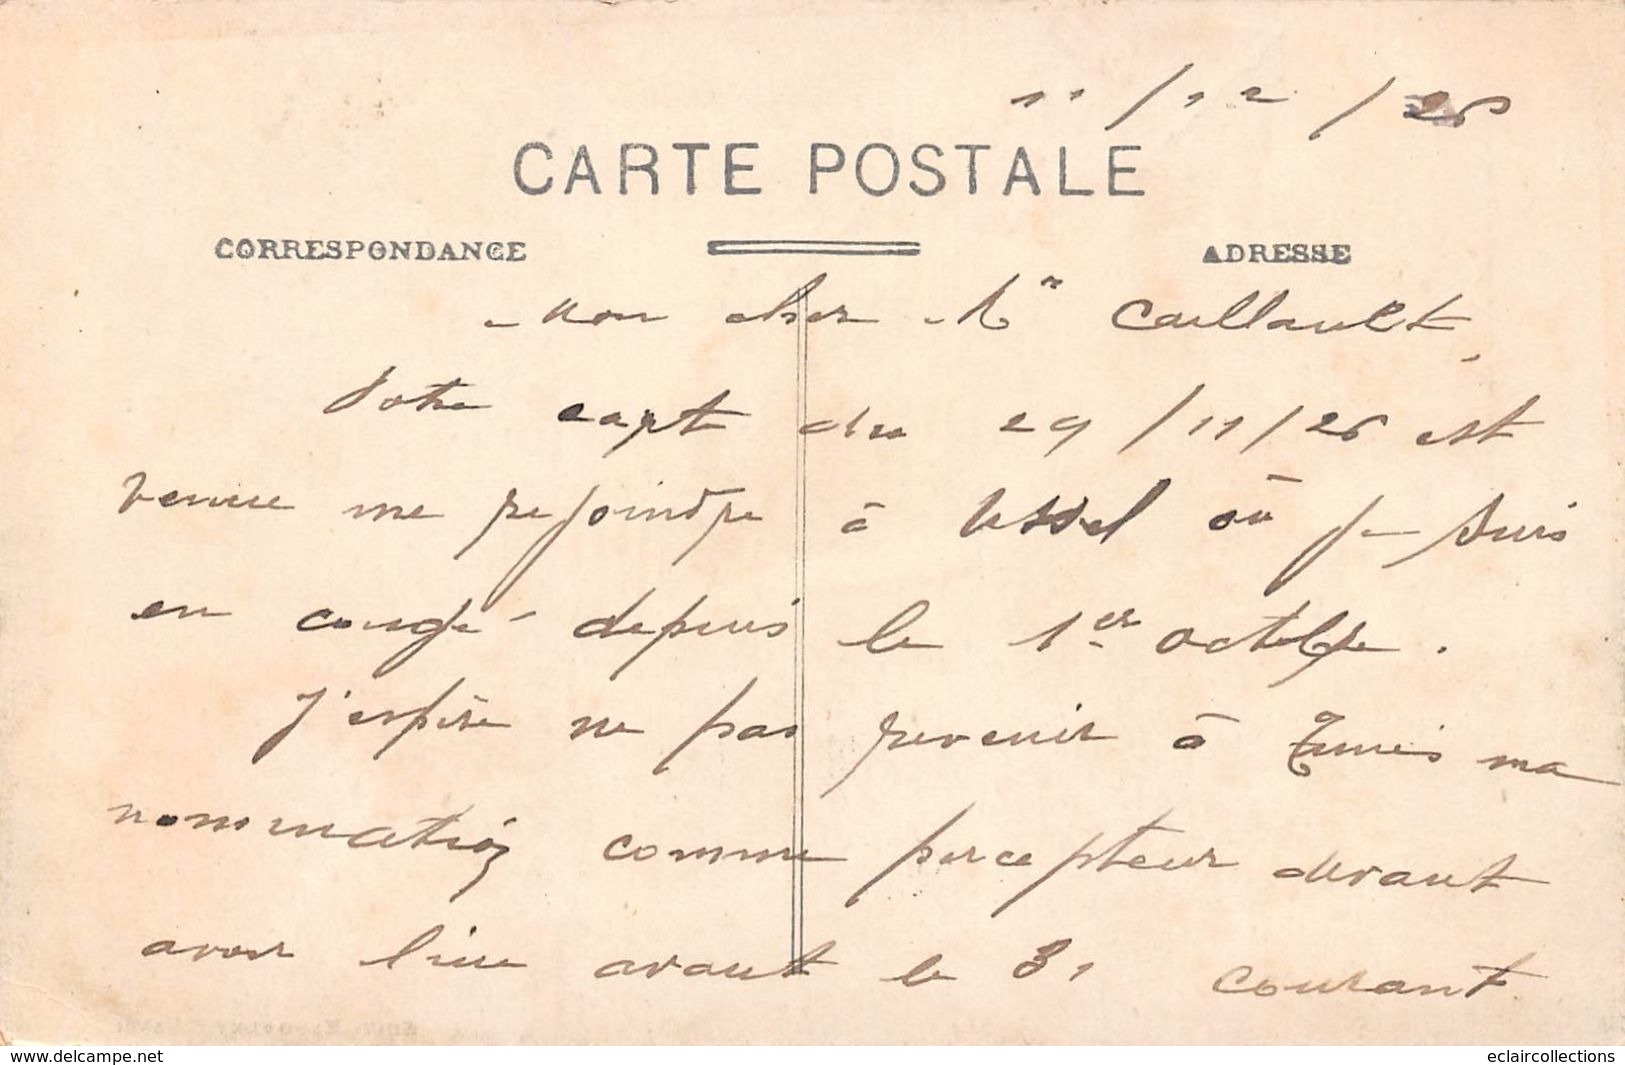 11/12/26
CARTE POSTALE
CORRESPONDANCE ADRESSE
Mon cher Mr Caillault,
Votre carte du 29/11/26 est
venue me rejoindre à Ussel où je suis
en congé depuis le 1er octobre.
J'espère ne pas revenir à Tunis ma
nomination comme percepteur devant
avoir lieu avant le 31 courant
www.delcampe.net eclaircollections